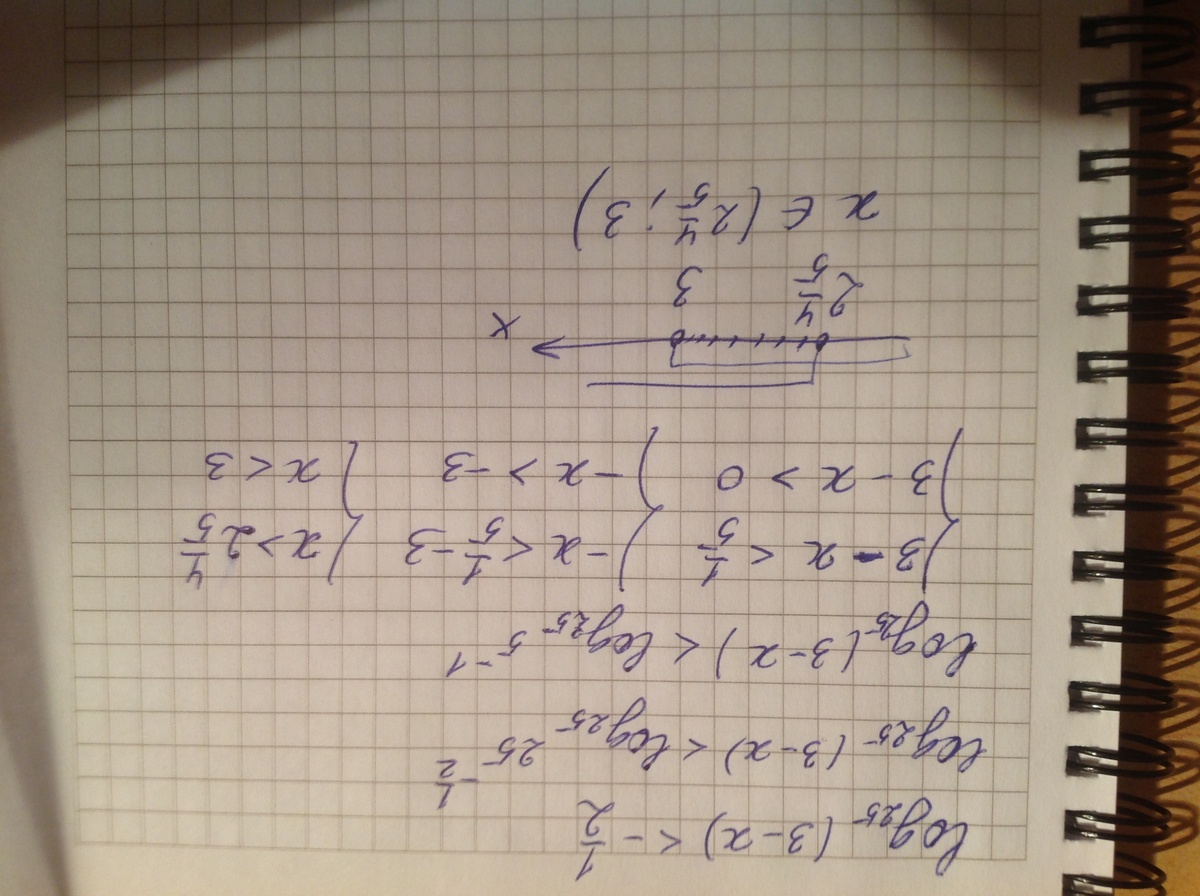 log₂₅ (3-x) < -1/2
log₂₅ (3-x) < log₂₅ 25^(-1/2)
log₂₅ (3-x) < log₂₅ 5⁻¹
{ 3-x < 1/5 { -x < 1/5 - 3 { x > 2 4/5
{ 3-x > 0 { -x > -3 { x < 3
2 4/5 3 x
x ∈ (2 4/5; 3)